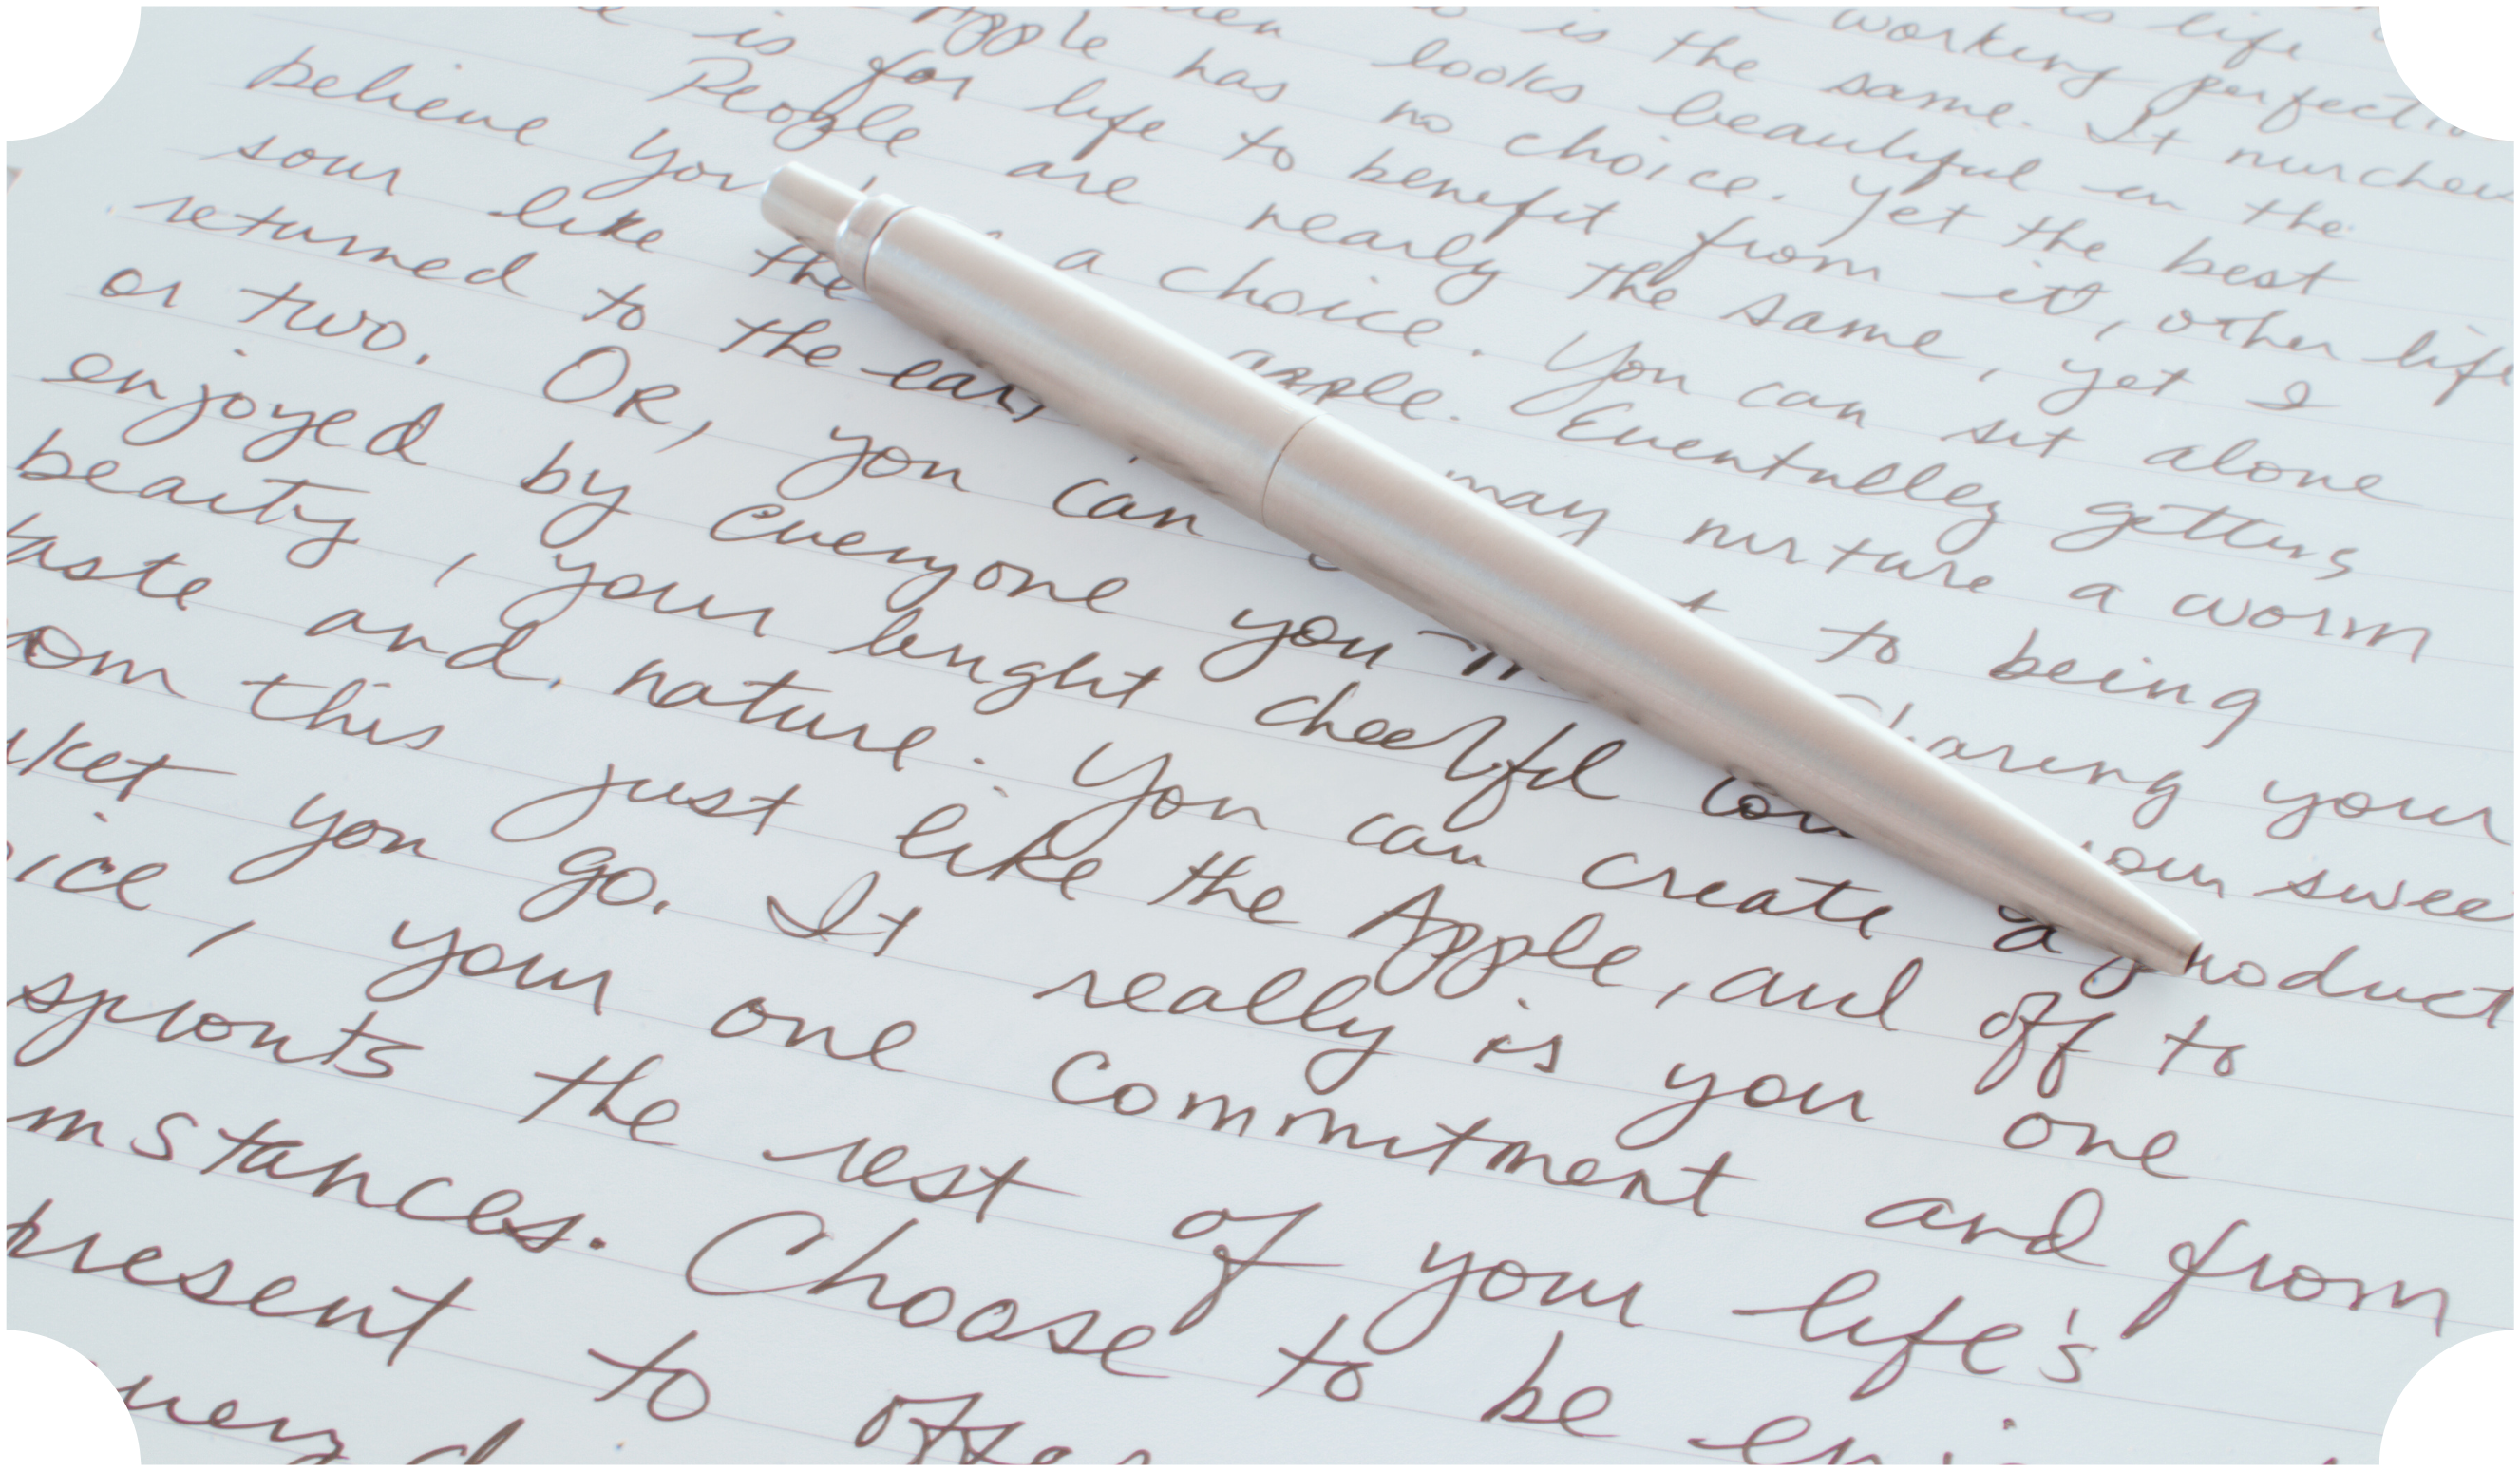 life
working
is the same. It
looks beautiful in the
Apple has no choice. Yet the best
is for life to benefit from it, other life
People are nearly the same, yet I
believe you a choice. You can sit alone
sour like the apple. Eventually getting
returned to the may nurture a worm
or two. OR, you can to being
enjoyed by everyone you Sharing your
beauty, your bright cheerful your swee
taste and nature. You can create a product
om this just like the Apple, and off to
rket you go. It really is you one
oice, your one commitment and from
sprouts the rest of your life's
mstances. Choose to be
present to